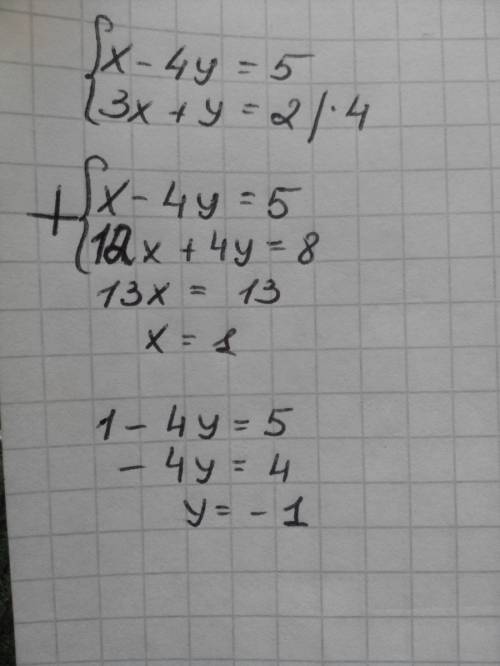 { x - 4y = 5
3x + y = 2 / · 4
+ { x - 4y = 5
12x + 4y = 8
13x = 13
x = 1
1 - 4y = 5
- 4y = 4
y = - 1